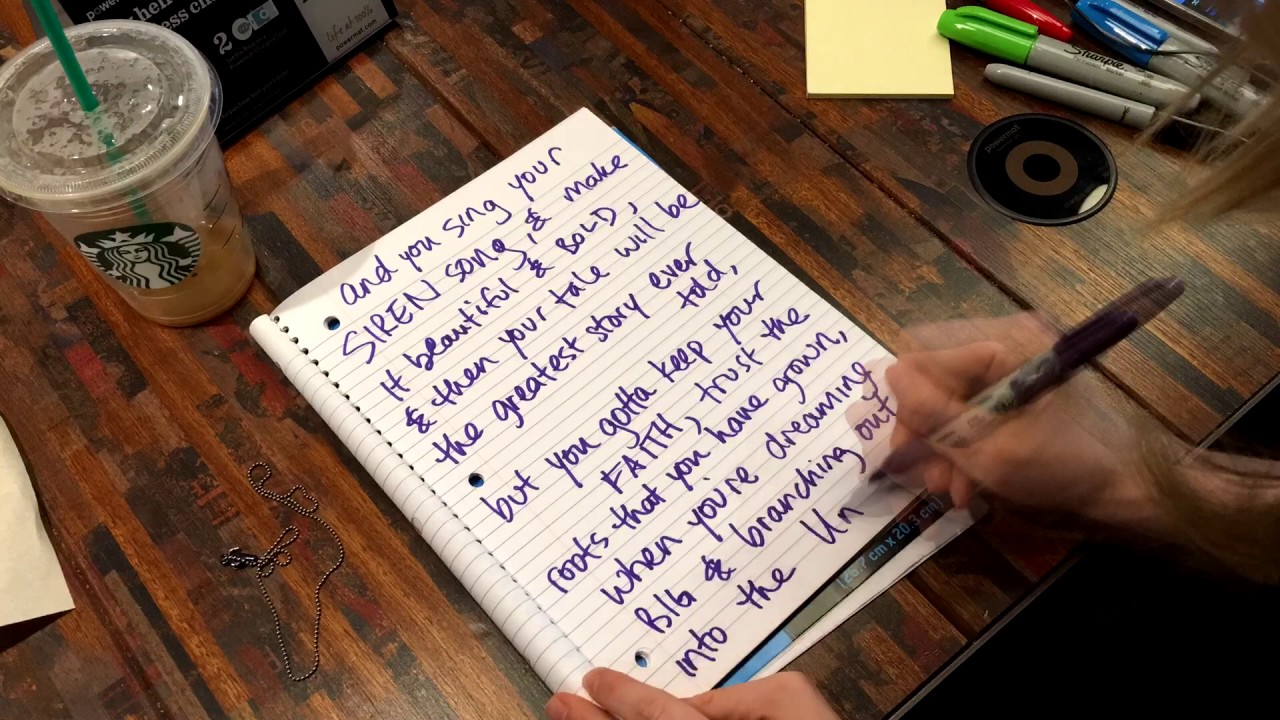 and you sing your
SIREN song, & make
it beautiful & BOLD,
& then your tale will be
the greatest story ever
told,
but you gotta keep your
FAITH, trust the
roots that you have grown,
when you're dreaming
BIG & branching out
into the Un
powermat
2
life at 100%
powermat.com
Sharpie
powermat
cm x 20.3 cm)